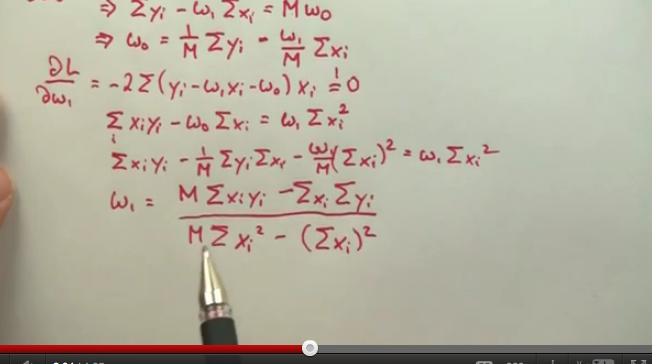 ⇒ Σyᵢ - ω₁Σxᵢ = Mω₀
⇒ ω₀ = 1/M Σyᵢ - ω₁/M Σxᵢ
∂L/∂ω₁ = -2Σ(yᵢ-ω₁xᵢ-ω₀)xᵢ =! 0
Σᵢ xᵢyᵢ - ω₀Σxᵢ = ω₁Σxᵢ²
Σxᵢyᵢ - 1/M Σyᵢ Σxᵢ - ω₁/M (Σxᵢ)² = ω₁Σxᵢ²
ω₁ = (MΣxᵢyᵢ - Σxᵢ Σyᵢ) / (MΣxᵢ² - (Σxᵢ)²)